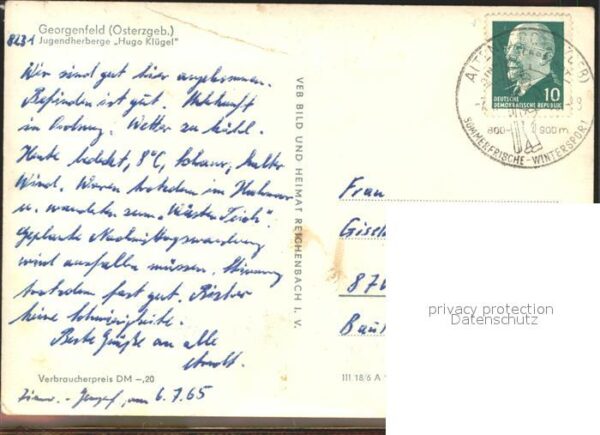 Georgenfeld (Osterzgeb.)
Jugendherberge „Hugo Klügel"
8231
Wir sind gut hier angekommen.
Befinden ist gut. Unterkunft
in Ordnung. Wetter zu kühl.
Heute bedeckt, 8°C, Schauer, kalter
Wind. Waren trotzdem im
u. wanderten zum
Geplante Nachmittagswanderung
wird ausfallen müssen. Stimmung
trotzdem fast gut. Bisher
keine Schwierigkeiten.
Beste Grüße an alle
Arndt.
Verbraucherpreis DM –,20
6.7.65
VEB BILD UND HEIMAT REICHENBACH I. V.
III 18/6 A
10
DEUTSCHE
DEMOKRATISCHE REPUBLIK
800- 900m
SOMMERFRISCHE-WINTERSPORT
Frau
Gisel
Baut
privacy protection
Datenschutz